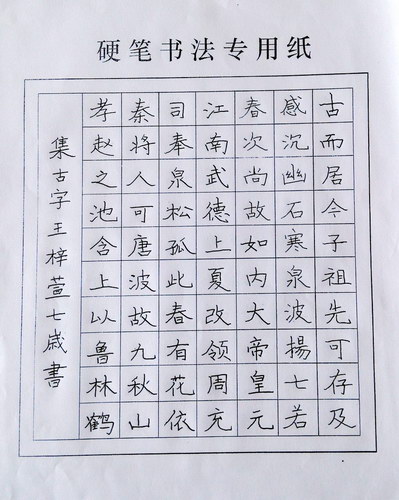 硬笔书法专用纸
古而居今子祖先可存及
感沉幽石寒泉波揚七若
春次尚故如内大帝皇元
江南武德上夏改領周充
司奉泉松孤此春有花依
秦将人可唐波故九秋山
孝赵之池含上以鲁林鹤
集古字王梓萱七歳書